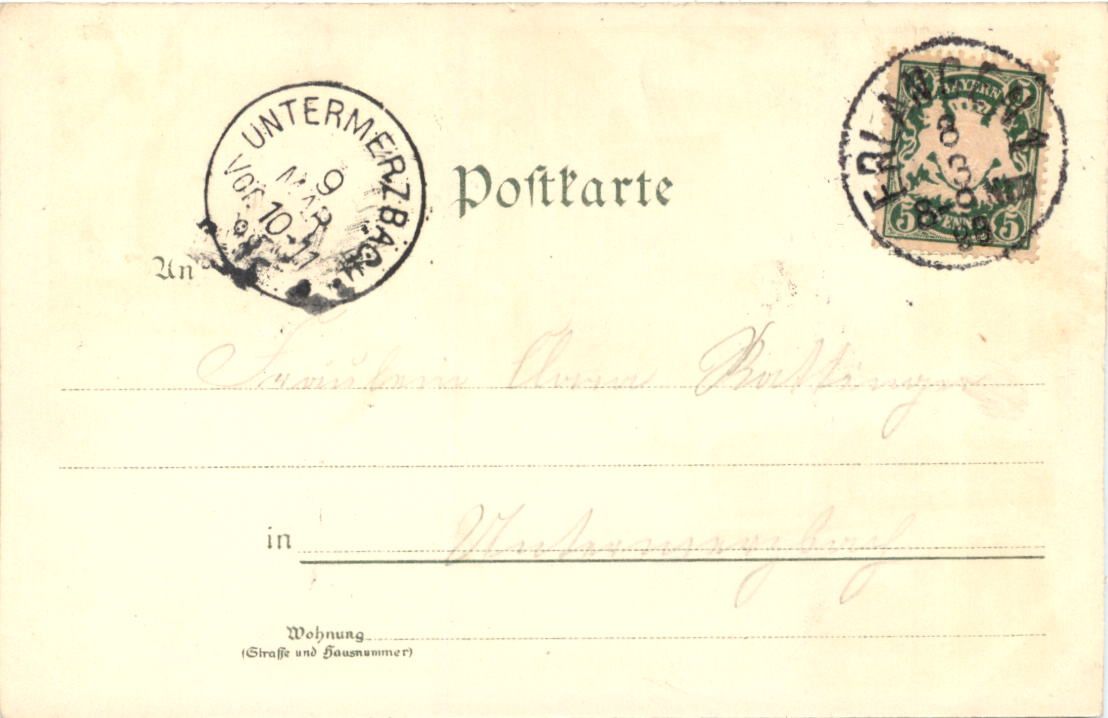 UNTERMERZBACH
9
MAR
VOR 10-11
Postkarte
ERLANGEN
8
3
98
BAYERN
5 5
5 PFENNIG 5
An
Fräulein
in Untermerzbach
Wohnung
(Straße und Hausnummer)